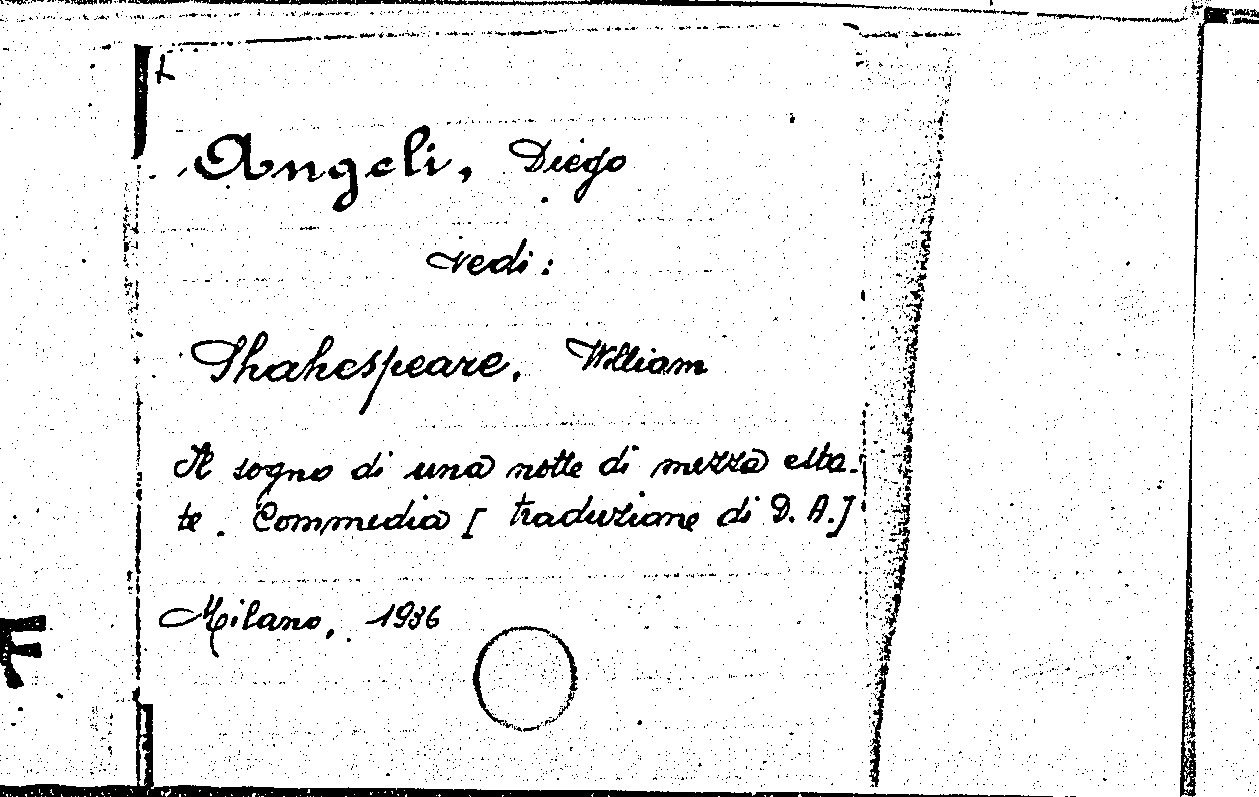 Angeli, Diego
vedi:
Shakespeare, William
Il sogno di una notte di mezza esta-
te. Commedia [traduzione di D. A.]
Milano, 1936